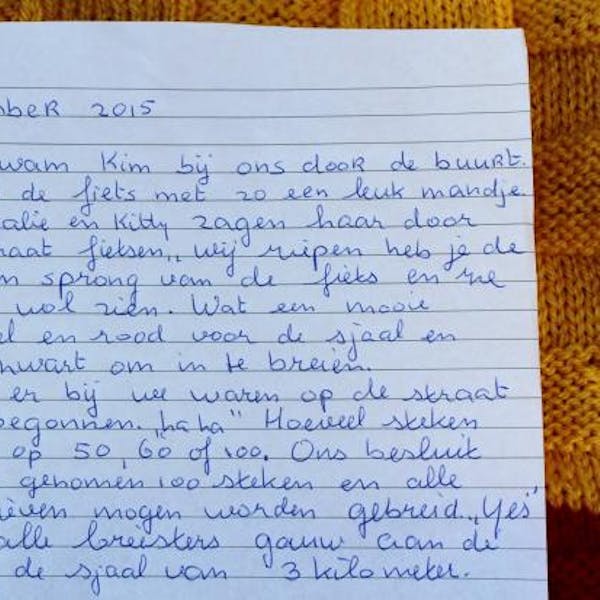 ber 2015
wam Kim bij ons door de buurt.
de fiets met zo een leuk mandje.
alie en Kitty zagen haar door
raat fietsen,, wij riepen heb je de
m sprong van de fiets en
wol zien. Wat een mooie
el en rood voor de sjaal en
zwart om in te breien.
er bij we waren op de straat
begonnen. „haha" Hoeveel steken
op 50, 60 of 100. Ons besluit
genomen 100 steken en alle
ieven mogen worden gebreid. „Yes"
alle breisters gauw aan de
de sjaal van 3 kilometer.